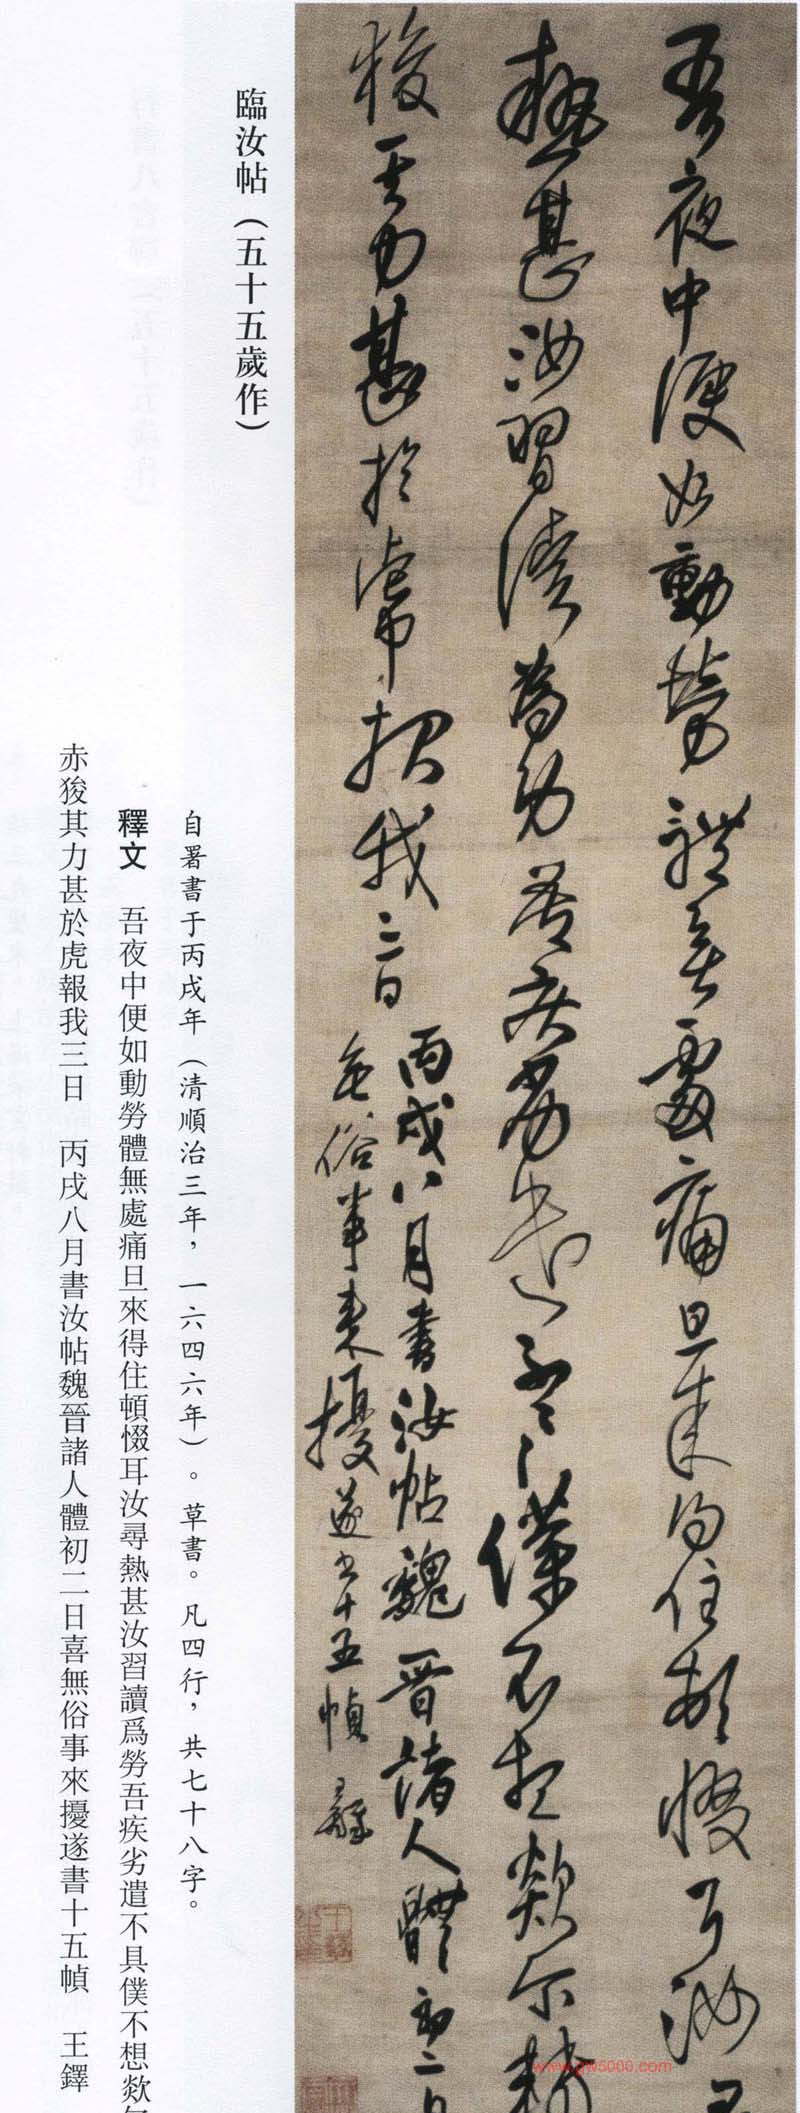 吾夜中便如動勞體無處痛旦來得住頓惙耳汝尋
熱甚汝習讀為勞吾疾劣遣不具僕不想欻尔赤
狻其力甚於虎報我三日
丙戌八月書汝帖魏晉諸人體初二日
喜無俗事來擾遂書十五幀 王鐸
臨汝帖（五十五歲作）
自署書于丙戌年（清順治三年，一六四六年）。草書。凡四行，共七十八字。
釋文 吾夜中便如動勞體無處痛旦來得住頓惙耳汝尋熱甚汝習讀爲勞吾疾劣遣不具僕不想欻
赤狻其力甚於虎報我三日 丙戌八月書汝帖魏晉諸人體初二日喜無俗事來擾遂書十五幀 王鐸
www.gw5000.com